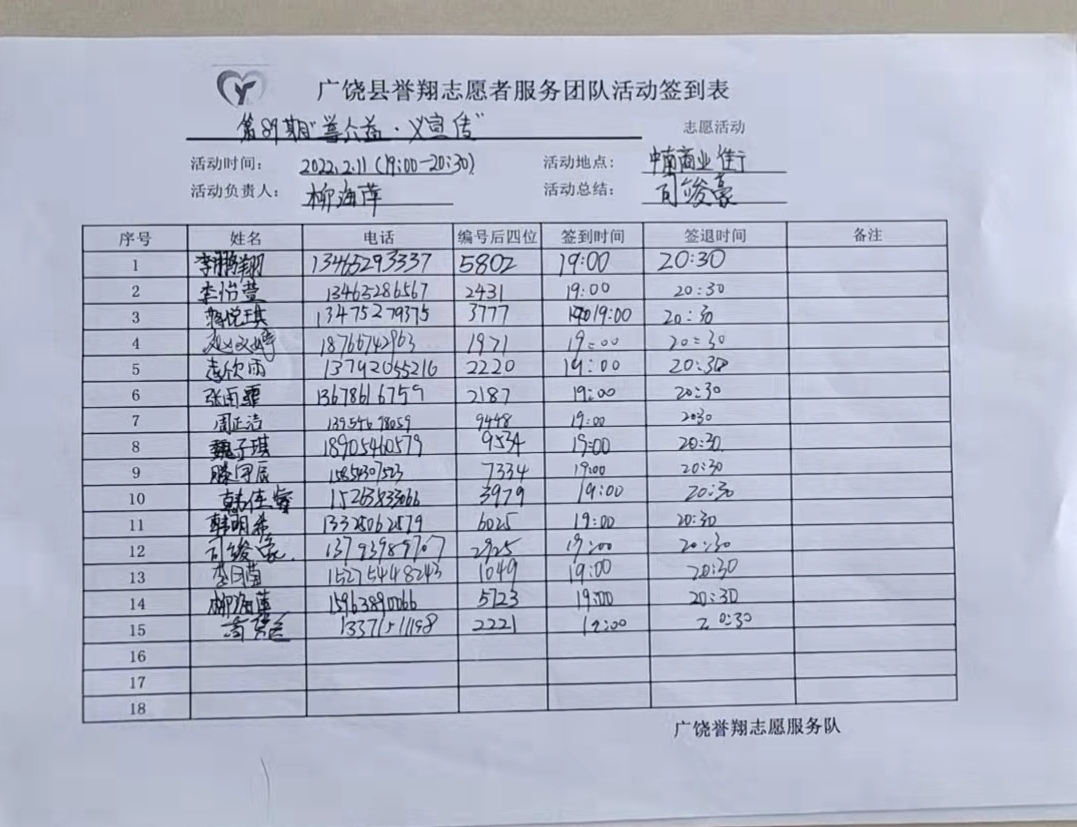 广饶县誉翔志愿者服务团队活动签到表
第89期"善公益·义宣传" 志愿活动
活动时间: 2022.2.11(19:00-20:30) 活动地点: 中南商业街
活动负责人: 柳海萍 活动总结: 司俊豪
序号 姓名 电话 编号后四位 签到时间 签退时间 备注
1 李鹏翔 13465293337 5802 19:00 20:30
2 李怡萱 13465286567 2431 19:00 20:30
3 韩悦琪 13475279375 3777 19:00 20:30
4 赵文婷 18766742963 1971 19:00 20:30
5 李欣雨 13792055216 2220 19:00 20:30
6 张雨霏 13678616759 2187 19:00 20:30
7 周正洁 9448 19:00 2030
8 魏子琪 18905460579 9534 19:00 20:30
9 滕 7334 19:00 20:30
10 韩佳睿 15263833066 3979 19:00 20:30
11 韩明希 13325062579 6025 19:00 20:30
12 司俊豪 13793989707 2925 19:00 20:30
13 15275448243 1049 19:00 20:30
14 柳海萍 15963890066 5723 19:00 20:30
15 13371511198 2221 19:00 20:30
16
17
18
广饶誉翔志愿服务队